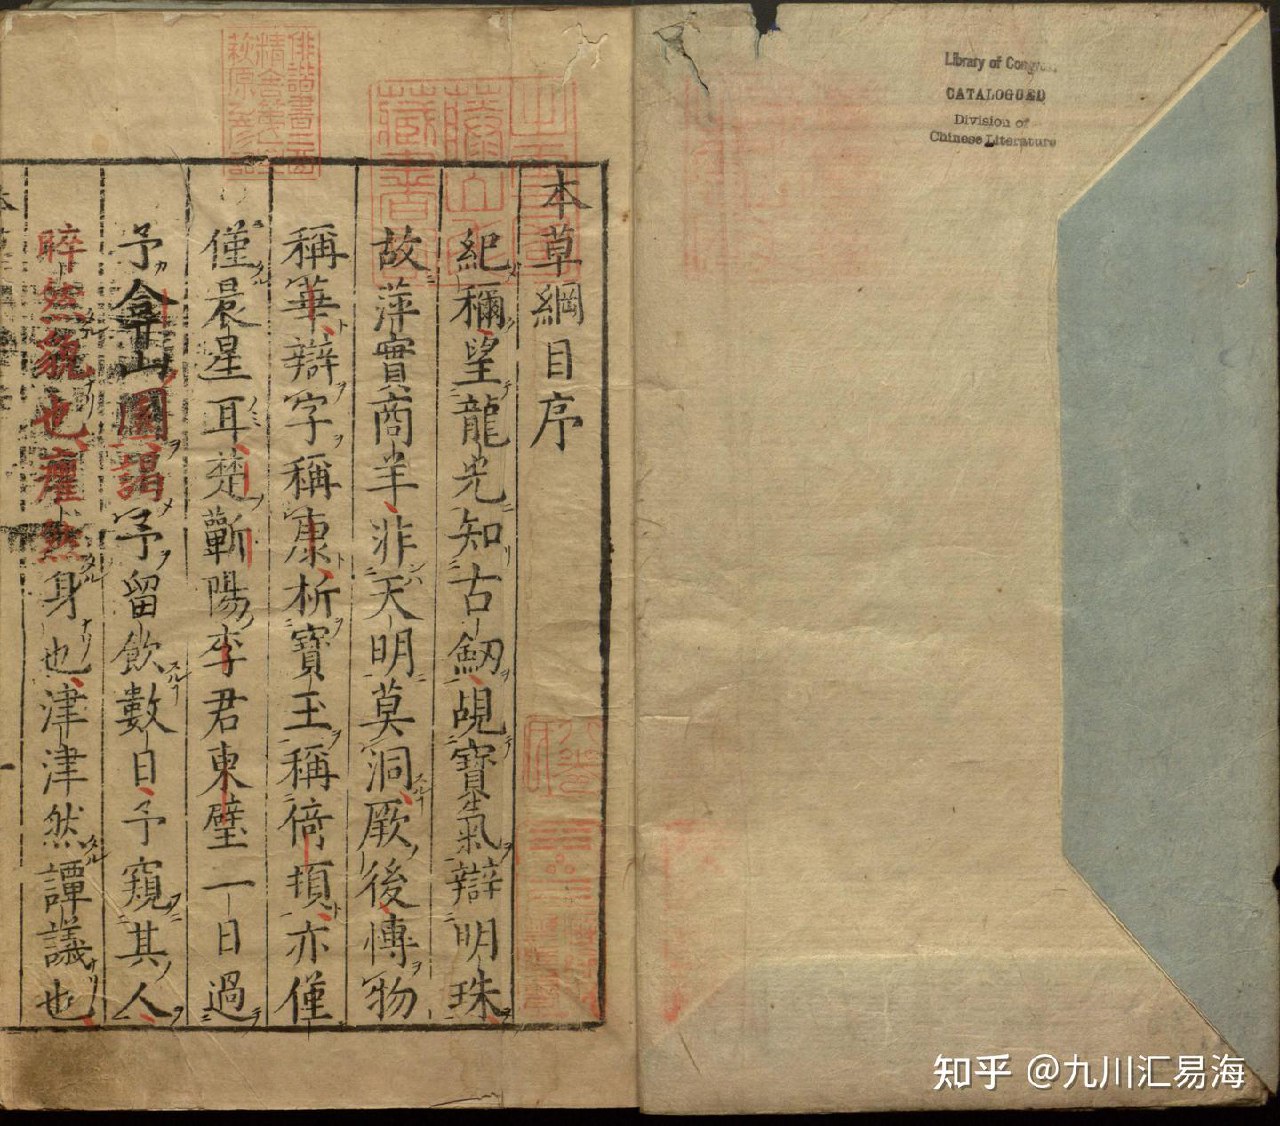 本草綱目序
紀稱望龍光知古劒覘寶氣辯明珠
故萍實商羊非天明莫洞厥後博物
稱華辯字稱康析寶玉稱倚頓亦僅
僅晨星耳楚蘄陽李君東璧一日過
予弇山園謁予留飲數日予窺其人
睟然貌也癯然身也津津然譚議也
Library of Congress
CATALOGUED
Division of
Chinese Literature
知乎 @九川汇易海